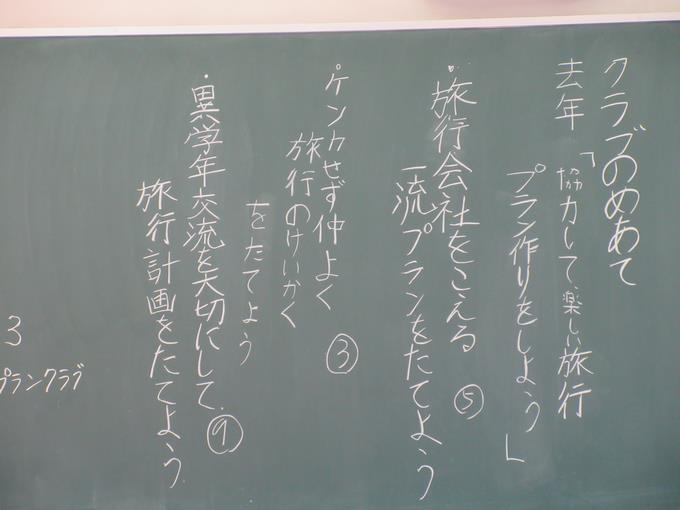 クラブのめあて
去年「協力して、楽しい旅行
プラン作りをしよう」
・旅行会社をこえる
一流プランをたてよう
⑤
・ケンカせず仲よく
旅行のけいかく
をたてよう
③
・異学年交流を大切にして、
旅行計画をたてよう
⑨
3
プランクラブ